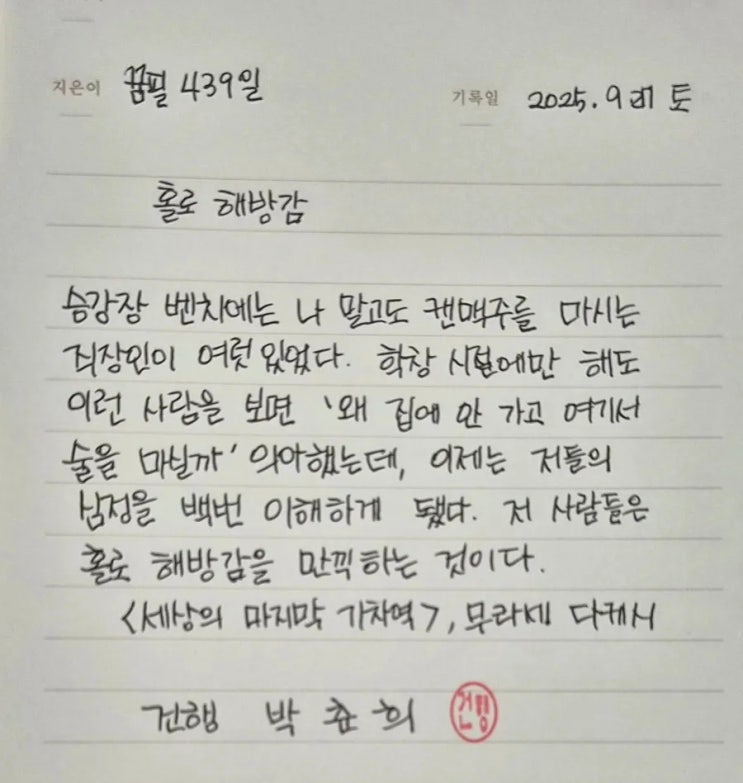 지은이 꿈필 439일
기록일 2025. 9 27 토
홀로 해방감
승강장 벤치에는 나 말고도 캔맥주를 마시는
직장인이 여럿 있었다. 학창 시절에만 해도
이런 사람을 보면 '왜 집에 안 가고 여기서
술을 마실까' 의아했는데, 이제는 저들의
심정을 백번 이해하게 됐다. 저 사람들은
홀로 해방감을 만끽하는 것이다.
<세상의 마지막 기차역>, 무라세 다케시
건행 박춘희
건행